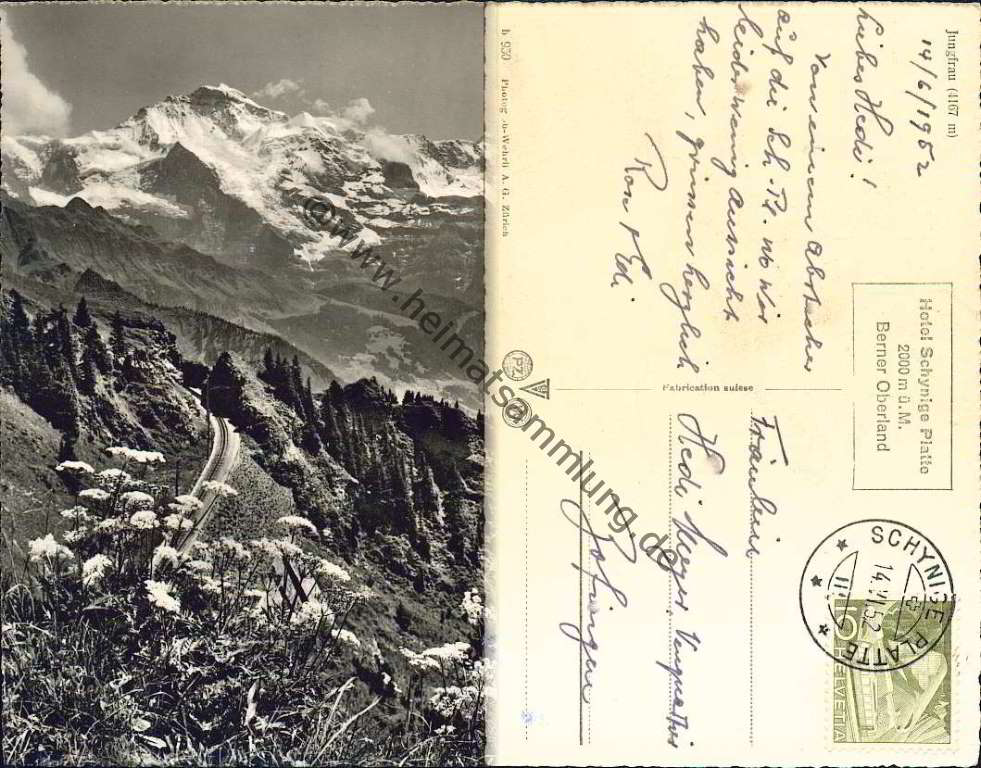 Jungfrau (4167 m)
14/6/1952
Liebes Hedi!
Von einem Abstecher
auf die Sch. Pl. wo wir
leider wenig Aussicht
haben, grüssen herzlich
Rosa & Edi
Hotel Schynige Platte
2000 m ü. M.
Berner Oberland
SCHYNIGE PLATTE
14.VI.52
5
HELVETIA
Fräulein
Hedi Meyer
Zofingen
Fabrication suisse
b 930 Photog Wehrli A. G. Zürich
PZ
@ www.heimatsammlung.de